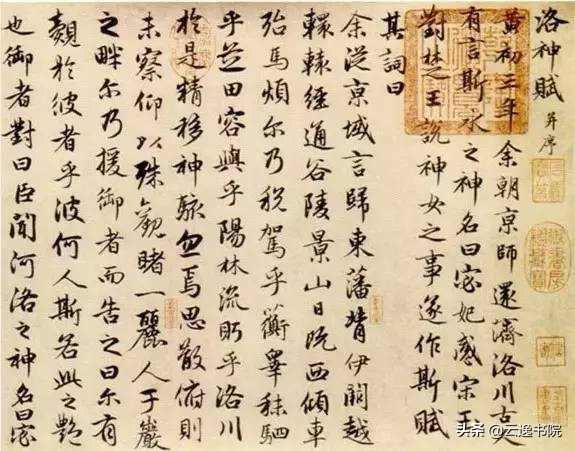 洛神賦 并序
黃初三年余朝京師還濟洛川古人
有言斯水之神名曰宓妃感宋玉
對楚王說神女之事遂作斯賦
其詞曰
余從京域言歸東藩背伊闕越
轘轅經通谷陵景山日既西傾車
殆馬煩尔乃稅駕乎蘅皋秣駟
乎芝田容與乎陽林流眄乎洛川
於是精移神駭忽焉思散俯則
未察仰以殊觀睹一麗人于巖
之畔尔乃援御者而告之曰尔有
覿於彼者乎彼何人斯若此之艷
也御者對曰臣聞河洛之神名曰宓
头条 @云逸书院